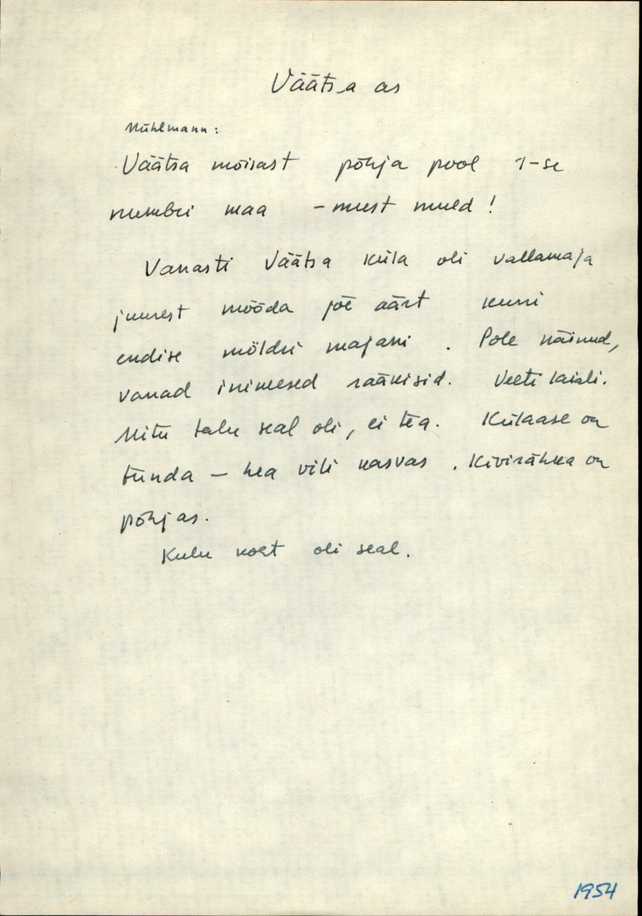 Väätsa as
Mühlmann:
Väätsa mõisast põhja pool 1-se
numbri maa – must muld!
Vanasti Väätsa küla oli vallamaja
juurest mööda jõe äärt kuni
endise möldri majani. Pole näinud,
vanad inimesed rääkisid. Veeti laiali.
Mitu talu seal oli, ei tea. Külaase on
tunda – hea vili kasvas. Kivirähka on
põhjas.
Kulu koht oli seal.
1954